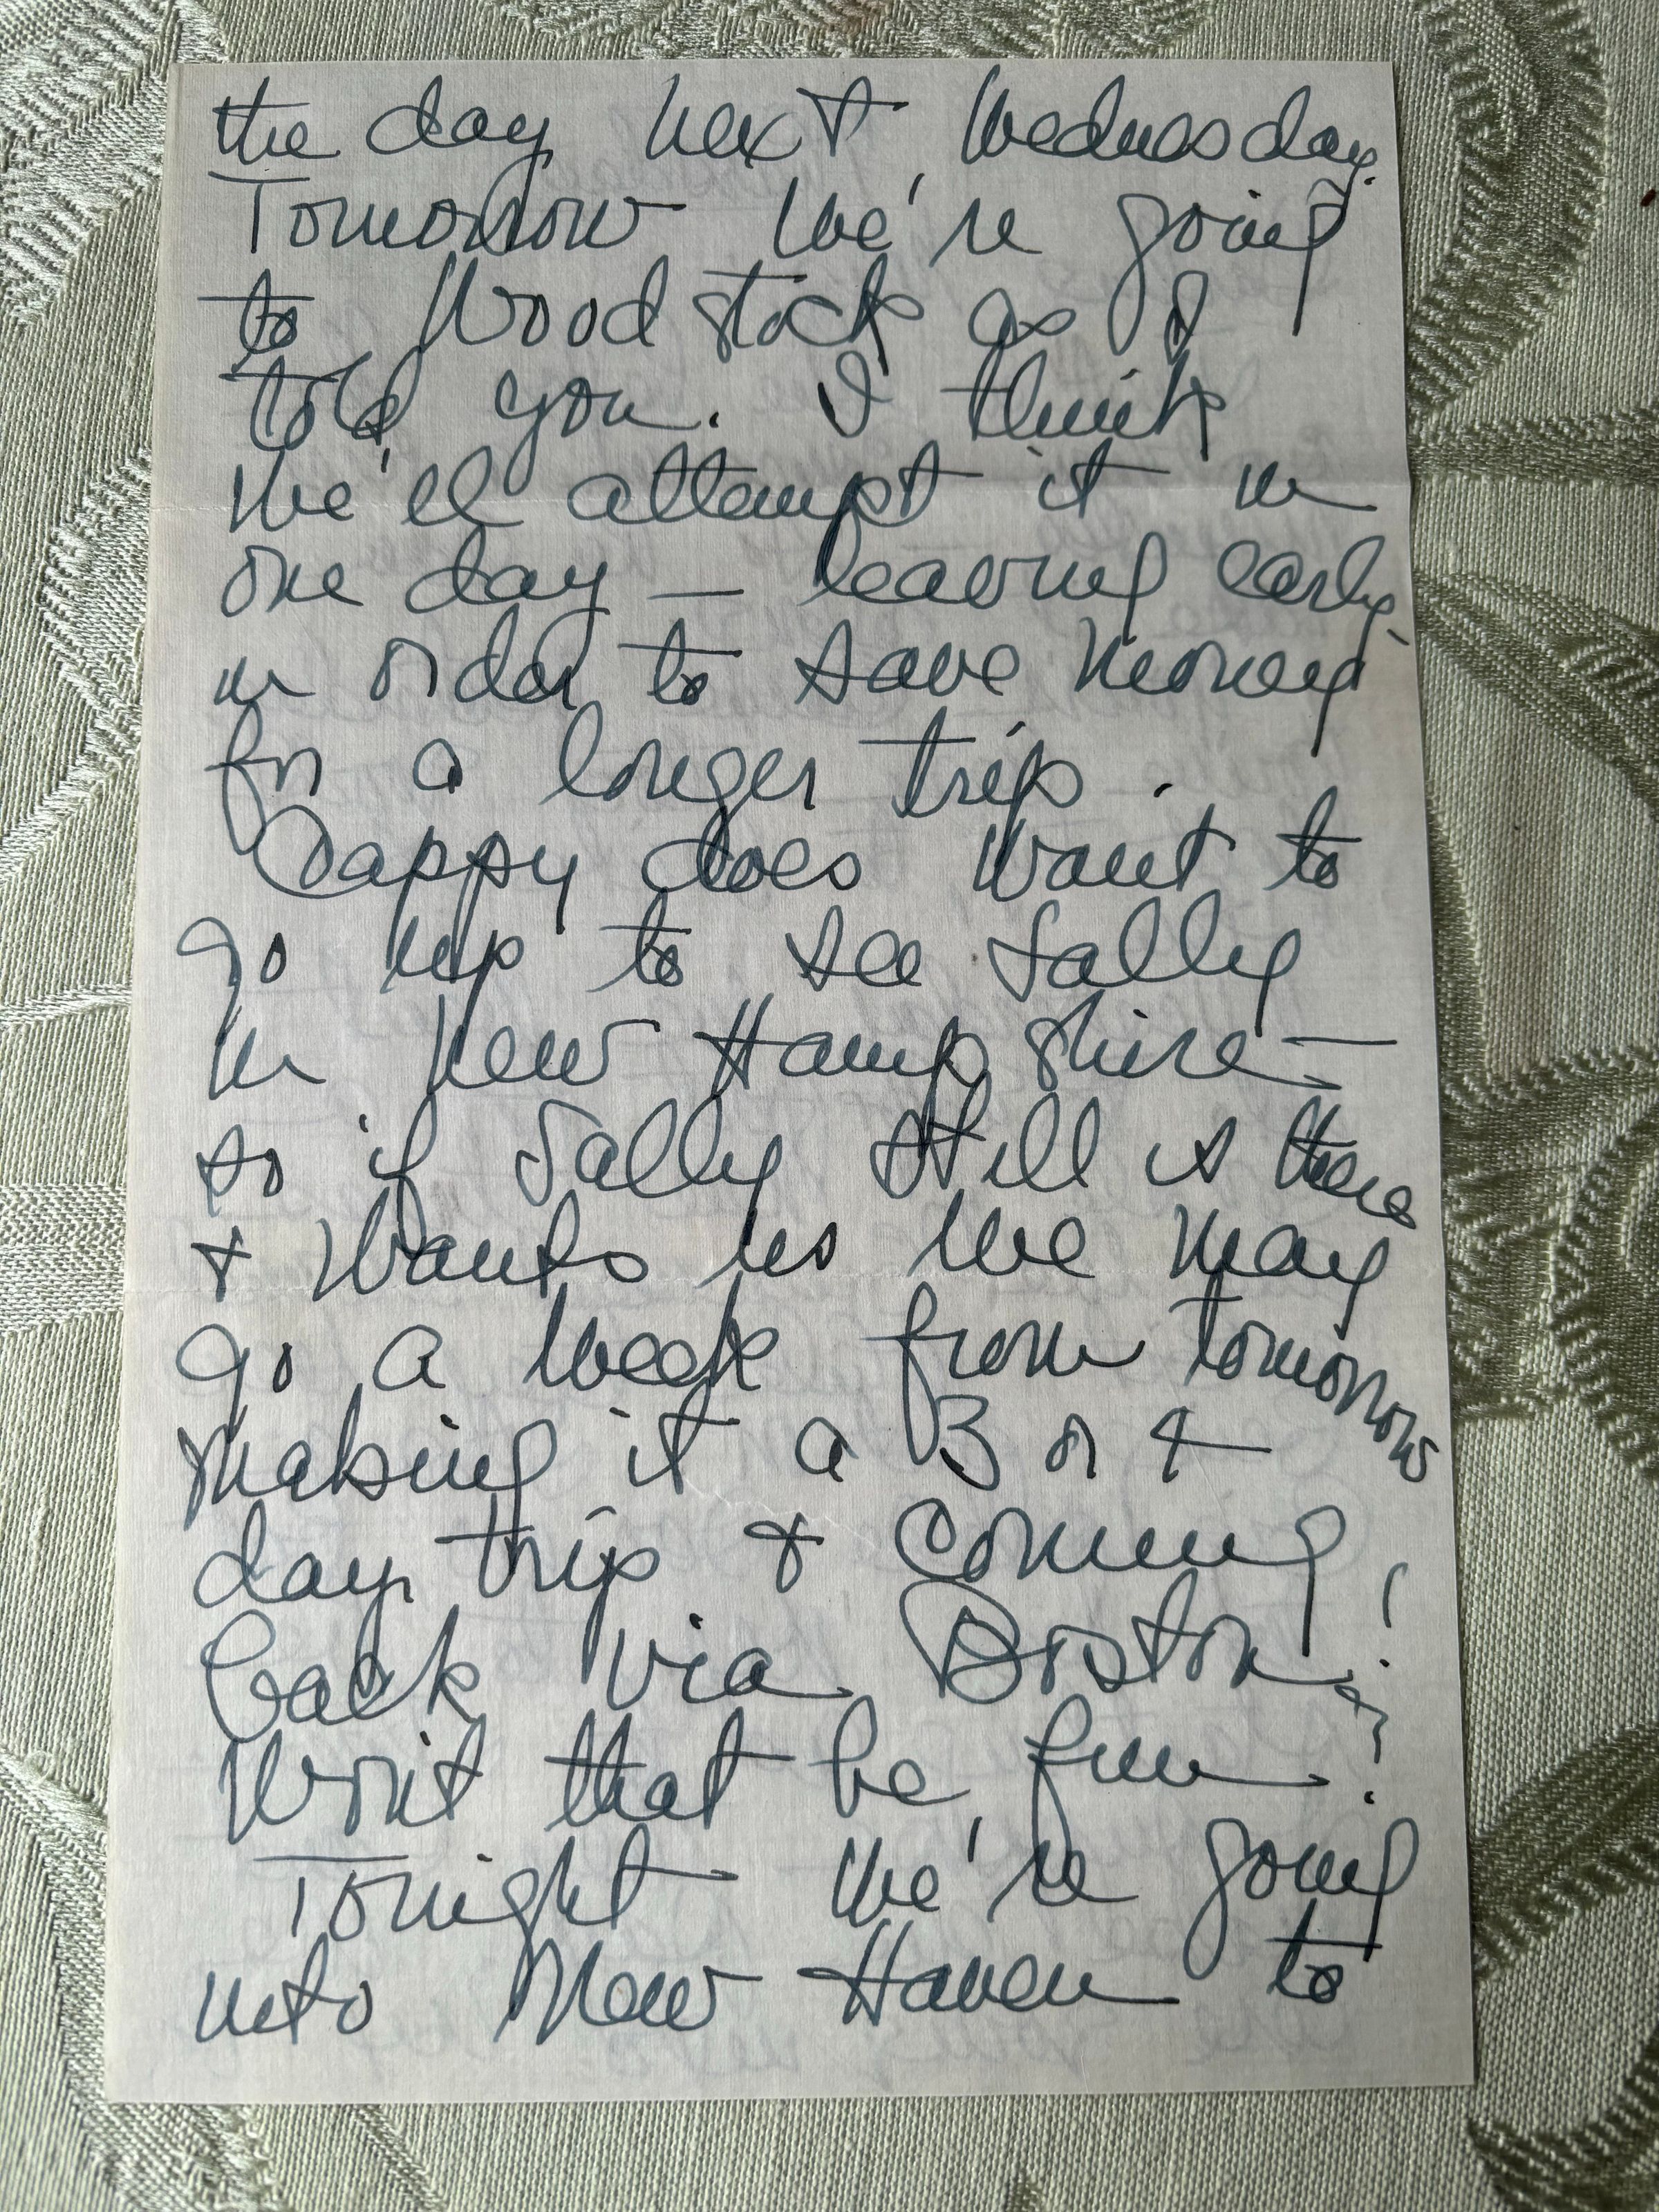 the day next Wednesday.
Tomorrow we're going
to Woodstock as I
told you. I think
we'll attempt it in
one day — leaving early
in order to save money
for a longer trip.
Pappy does want to
go up to see Sally
in New Hampshire —
so if Sally still is there
+ wants us we may
go a week from tomorrow
making it a 3 or 4
day trip + coming
back via Boston!
Won't that be fun?
Tonight we're going
into New Haven to